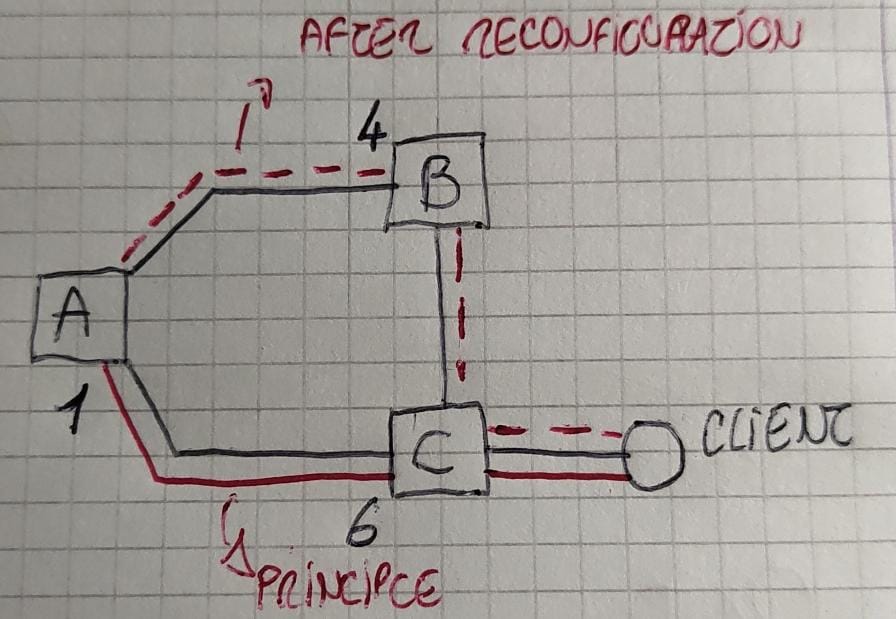 AFTER RECONFIGURATION
4
B
A
1
C
CLIENT
6
PRINCIPLE